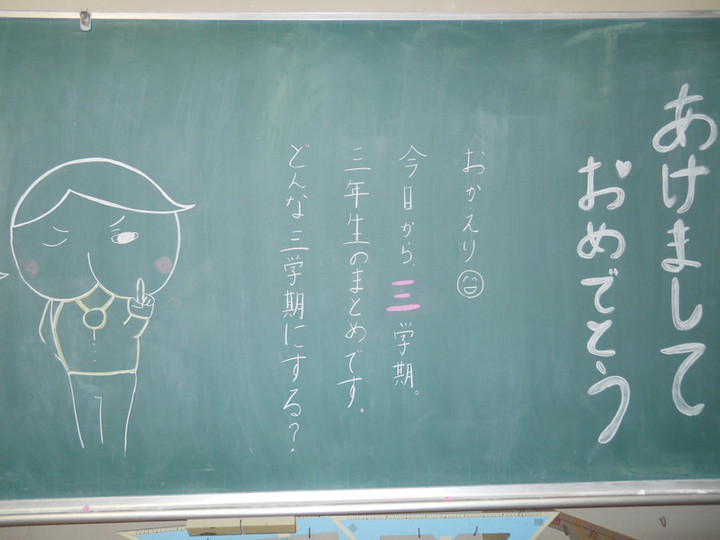 あけまして
おめでとう
おかえり
今日から、三学期。
三年生のまとめです。
どんな三学期にする?